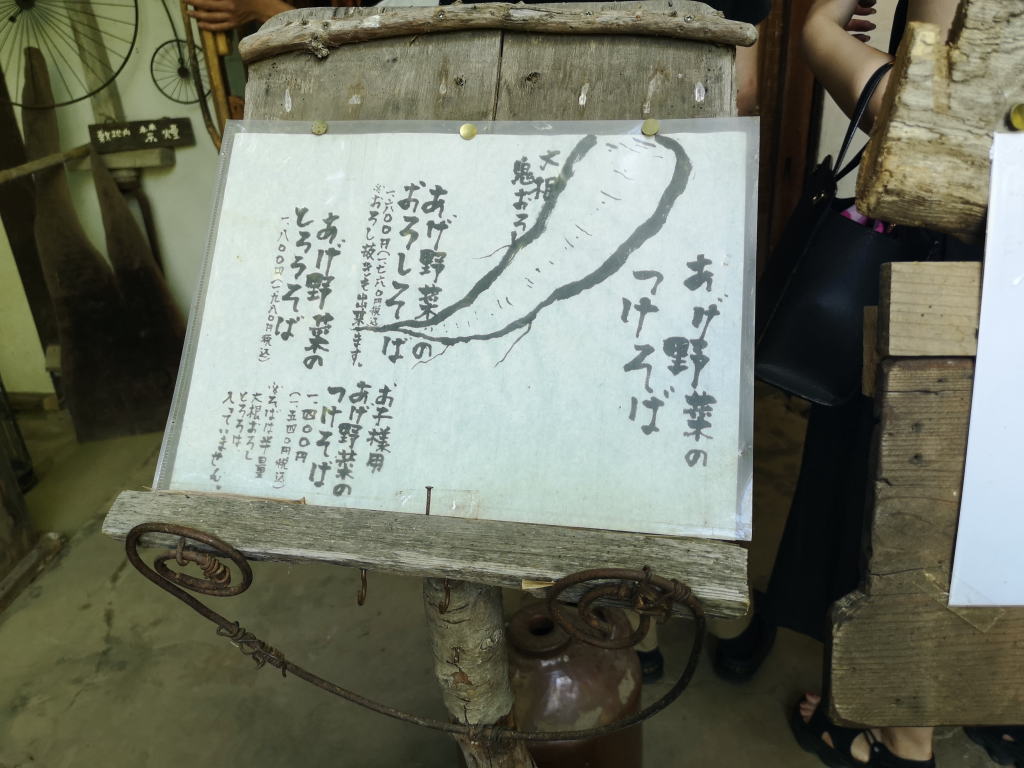 あげ野菜の
つけそば
大根
鬼おろし
あげ野菜の
おろしそば
一、六〇〇円(一、七六〇円税込)
※おろし抜きも出来ます。
あげ野菜の
とろろそば
一、八〇〇円(一、九八〇円税込)
お子様用
あげ野菜の
つけそば
一、四〇〇円
(一、五四〇円税込)
※そばは半量
大根おろし
とろろは、
入っていません。
敷地内 禁煙